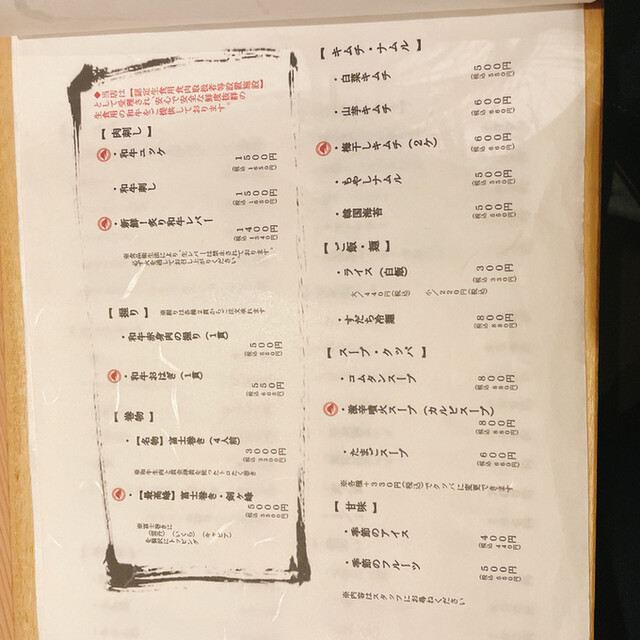 ◆当店は【認定生食用食肉取扱者等設置施設】
として受理され安心で安全な鮮度抜群の
生食用の和牛をご提供しております。
【 肉刺し 】
・和牛ユッケ
1500円
(税込 1650円)
・和牛刺し
1500円
(税込 1650円)
・新鮮!炙り和牛レバー
1400円
(税込 1540円)
※食品衛生法により、生レバーは禁止されております。
必ず火を通してお召し上がりください。
【 握り 】 ※握りは各種2貫からご注文承れます
・和牛赤身肉の握り(1貫)
500円
(税込 550円)
・和牛おはぎ(1貫)
550円
(税込 605円)
【 巻物 】
・【名物】富士巻き(4人前)
3000円
(税込 3300円)
・【最高峰】富士巻き・剣ヶ峰
5000円
(税込 5500円)
※富士巻きに
(雲丹)(いくら)(キャビア)
を贅沢にトッピング
【 キムチ・ナムル 】
・白菜キムチ
500円
(税込 550円)
・山芋キムチ
600円
(税込 660円)
・梅干しキムチ(2ケ)
600円
(税込 660円)
・もやしナムル
500円
(税込 550円)
・韓国海苔
500円
(税込 550円)
【 ご飯・麺 】
・ライス(白飯)
300円
(税込 330円)
大/440円(税込) 小/220円(税込)
・すだち冷麺
800円
(税込 880円)
【 スープ・クッパ 】
・コムタンスープ
800円
(税込 880円)
・激辛噴火スープ(カルビスープ)
800円
(税込 880円)
・たまごスープ
600円
(税込 660円)
※各種+330円(税込)でクッパに変更できます
【 甘味 】
・季節のアイス
400円
(税込 440円)
・季節のフルーツ
500円
(税込 550円)
※内容はスタッフにお尋ねください